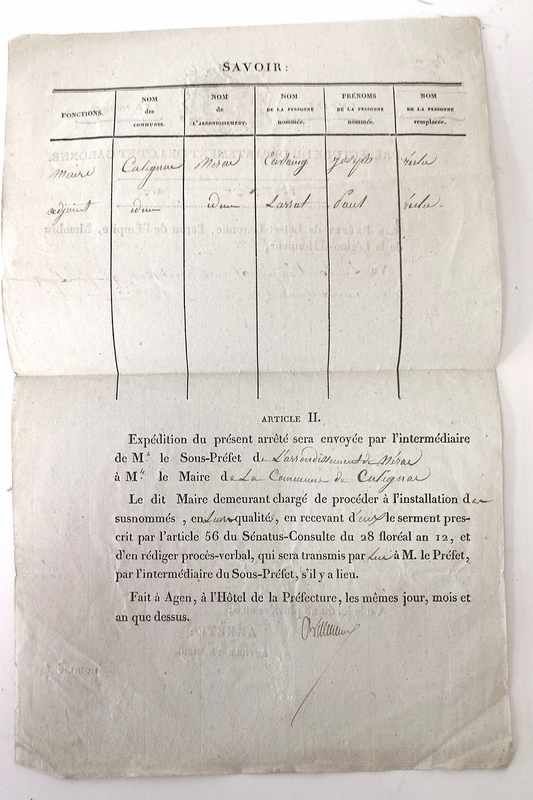 SAVOIR:
FONCTIONS. NOM des COMMUNES. NOM de L'ARRONDISSEMENT. NOM DE LA PERSONNE nommée. PRÉNOMS DE LA PERSONNE nommée. NOM DE LA PERSONNE remplacée.
Maire Calignac Nérac Joseph
adjoint idem idem Larrat Paul
ARTICLE II.
Expédition du présent arrêté sera envoyée par l'intermédiaire
de Mr. le Sous-Préfet de L'arrondissement de Nérac
à Mr. le Maire de La Commune de Calignac
Le dit Maire demeurant chargé de procéder à l'installation des
susnommés, en leur qualité, en recevant d'eux le serment pres-
crit par l'article 56 du Sénatus-Consulte du 28 floréal an 12, et
d'en rédiger procès-verbal, qui sera transmis par lui à M. le Préfet,
par l'intermédiaire du Sous-Préfet, s'il y a lieu.
Fait à Agen, à l'Hôtel de la Préfecture, les mêmes jour, mois et
an que dessus.